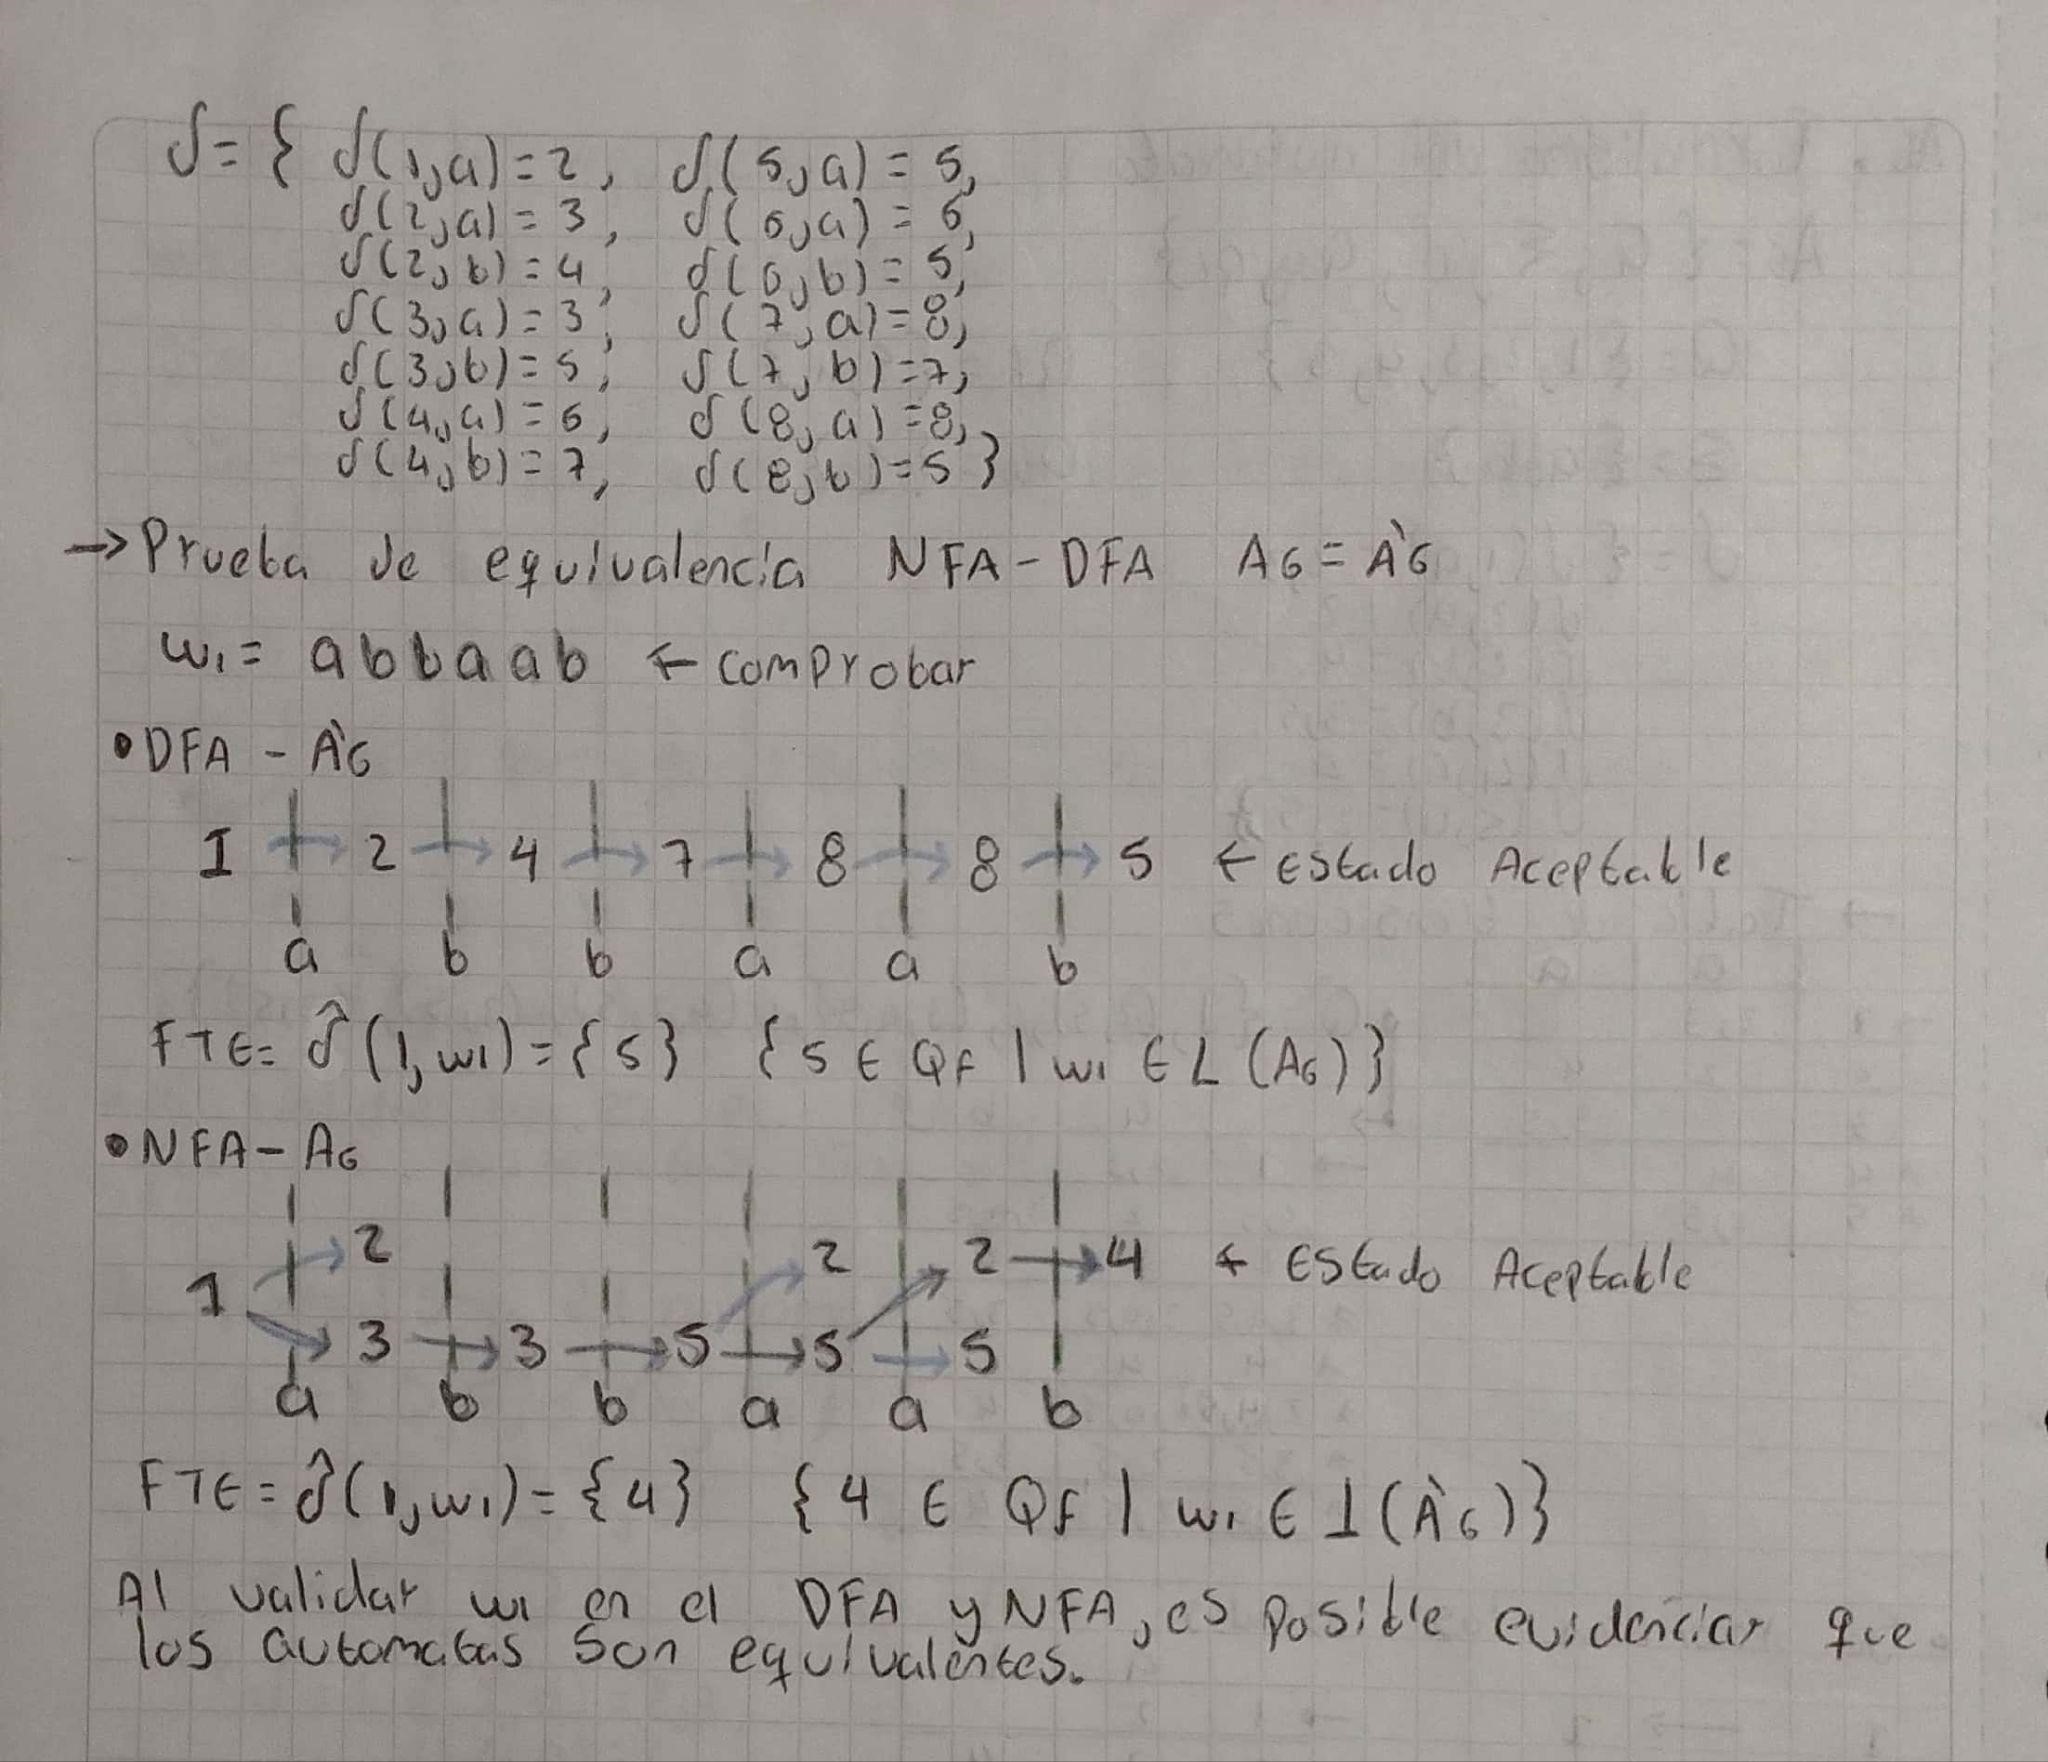 δ = { δ(1,a) = 2, δ(5,a) = 5,
δ(2,a) = 3, δ(6,a) = 6,
δ(2,b) = 4, δ(6,b) = 5,
δ(3,a) = 3, δ(7,a) = 8,
δ(3,b) = 5, δ(7,b) = 7,
δ(4,a) = 6, δ(8,a) = 8,
δ(4,b) = 7, δ(8,b) = 5 }
→ Prueba de equivalencia NFA - DFA A6 = À6
w1 = abbaab ← comprobar
• DFA - À6
1 → 2 → 4 → 7 → 8 → 8 → 5 ← Estado Aceptable
a b b a a b
FTE = δ̂(1,w1) = {5} {5 ∈ QF | w1 ∈ L(A6)}
• NFA - A6
2 2 2 → 4 ← Estado Aceptable
1
3 → 3 → 5 → 5 → 5
a b b a a b
FTE = δ̂(1,w1) = {4} {4 ∈ QF | w1 ∈ L(À6)}
Al validar w1 en el DFA y NFA, es posible evidenciar que
los automatas son equivalentes.